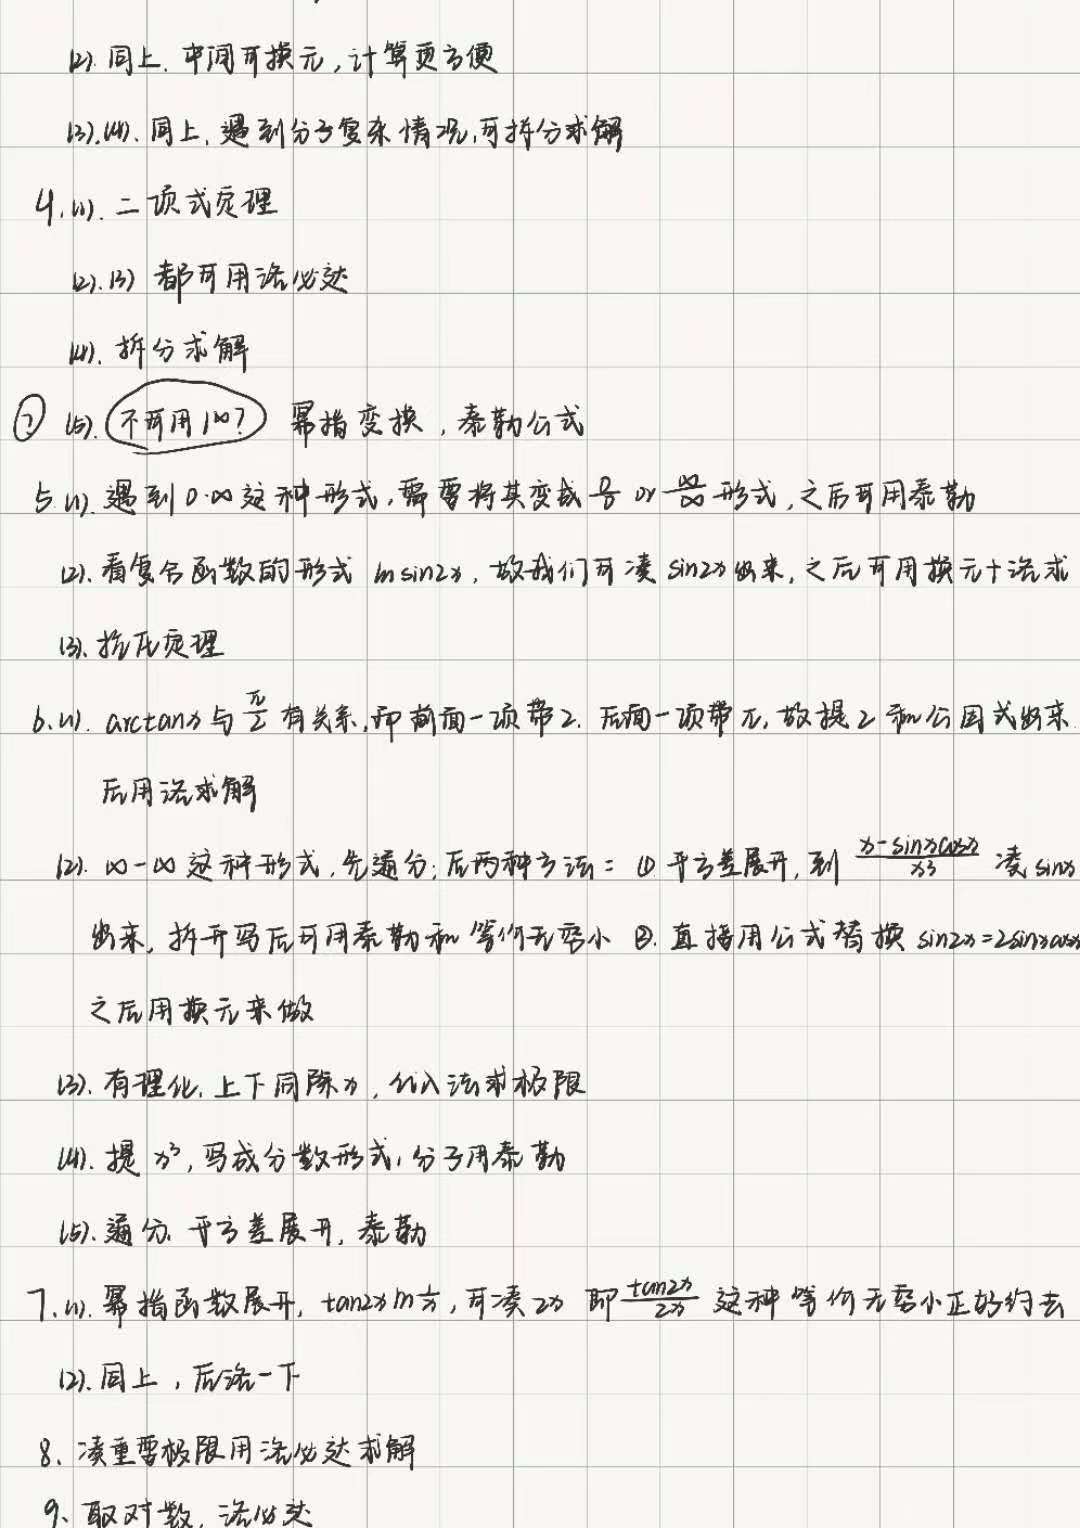 (2). 同上. 中间可换元,计算更方便
(3).(4). 同上. 遇到分子复杂情况,可拆分求解
4.(1). 二项式定理
(2).(3) 都可用洛必达
(4). 拆分求解
? (5). 不可用1^∞? 幂指变换,泰勒公式
5.(1). 遇到0·∞这种形式,需要将其变成0/0 or ∞/∞形式,之后可用泰勒
(2). 看复合函数的形式 ln sin2x, 故我们可凑 sin2x出来,之后可用换元+洛求
(3). 夹
6.(1). arctanx与π/2有关系,即前面一项带2. 后面一项带π,故提2和公因式出来
后用洛求解
(2). ∞-∞这种形式,先通分;后两种方法: ① 平方差展开,到 (x-sinxcosx)/x^3 凑 sinx
出来,拆开写后可用泰勒和等价无穷小 ②. 直接用公式替换 sin2x=2sinxcosx
之后用换元来做
(3). 有理化,上下同除x,代入法求极限
(4). 提 x^3,写成分数形式,分子用泰勒
(5). 通分. 平方差展开,泰勒
7.(1). 幂指函数展开, tan2x ln 1/x,可凑2x 即 tan2x/2x 这种等价无穷小正好约去
(2). 同上,后洛一下
8、凑重要极限用洛必达求解
9、取对数,洛必达